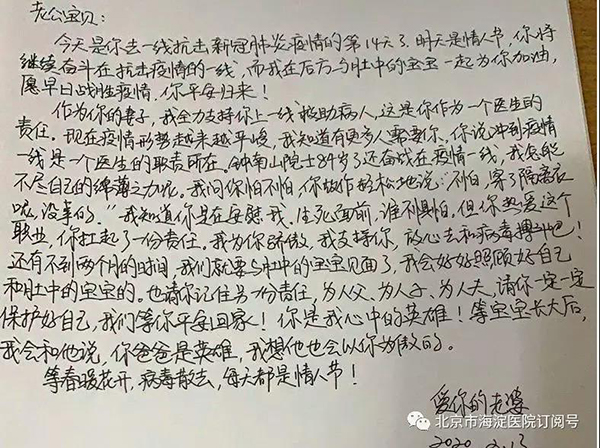 老公宝贝:
今天是你去一线抗击新冠肺炎疫情的第14天了,明天是情人节,你将
继续奋斗在抗击疫情的一线,而我在后方与肚中的宝宝一起为你加油,
愿早日战胜疫情,你平安归来!
作为你的妻子,我全力支持你上一线救助病人,这是你作为一个医生的
责任。现在疫情形势越来越严峻,我知道有更多人需要你,你说冲到疫情
一线是一个医生的职责所在。钟南山院士84岁了还奋战在疫情一线,我怎能
不尽自己的绵薄之力呢。我问你怕不怕,你故作轻松地说:“不怕,穿了隔离衣
呢,没事的。”我知道你是在安慰我,生死面前,谁不惧怕,但你热爱这个
职业,你扛起了一份责任。我为你骄傲,我支持你,放心去和病毒搏斗吧!
还有不到两个月的时间,我们就要与肚中的宝宝见面了,我会好好照顾好自己
和肚中的宝宝的。也请你记住另一份责任,为人父、为人子、为人夫,请你一定一定
保护好自己,我们等你平安回家!你是我心中的英雄!等宝宝长大后,
我会和他说,你爸爸是英雄,我想他也会以你为傲的。
等春暖花开,病毒散去,每天都是情人节!
爱你的老婆
2020.2.13
北京市海淀医院订阅号